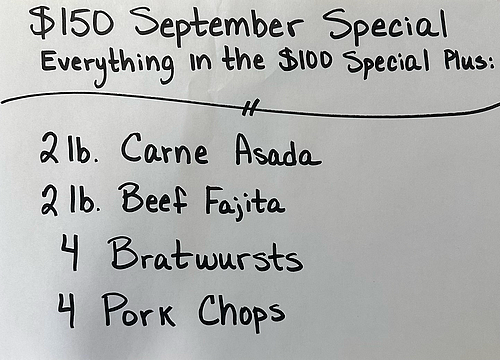 $150 September Special
Everything in the $100 Special Plus:
2 lb. Carne Asada
2 lb. Beef Fajita
4 Bratwursts
4 Pork Chops